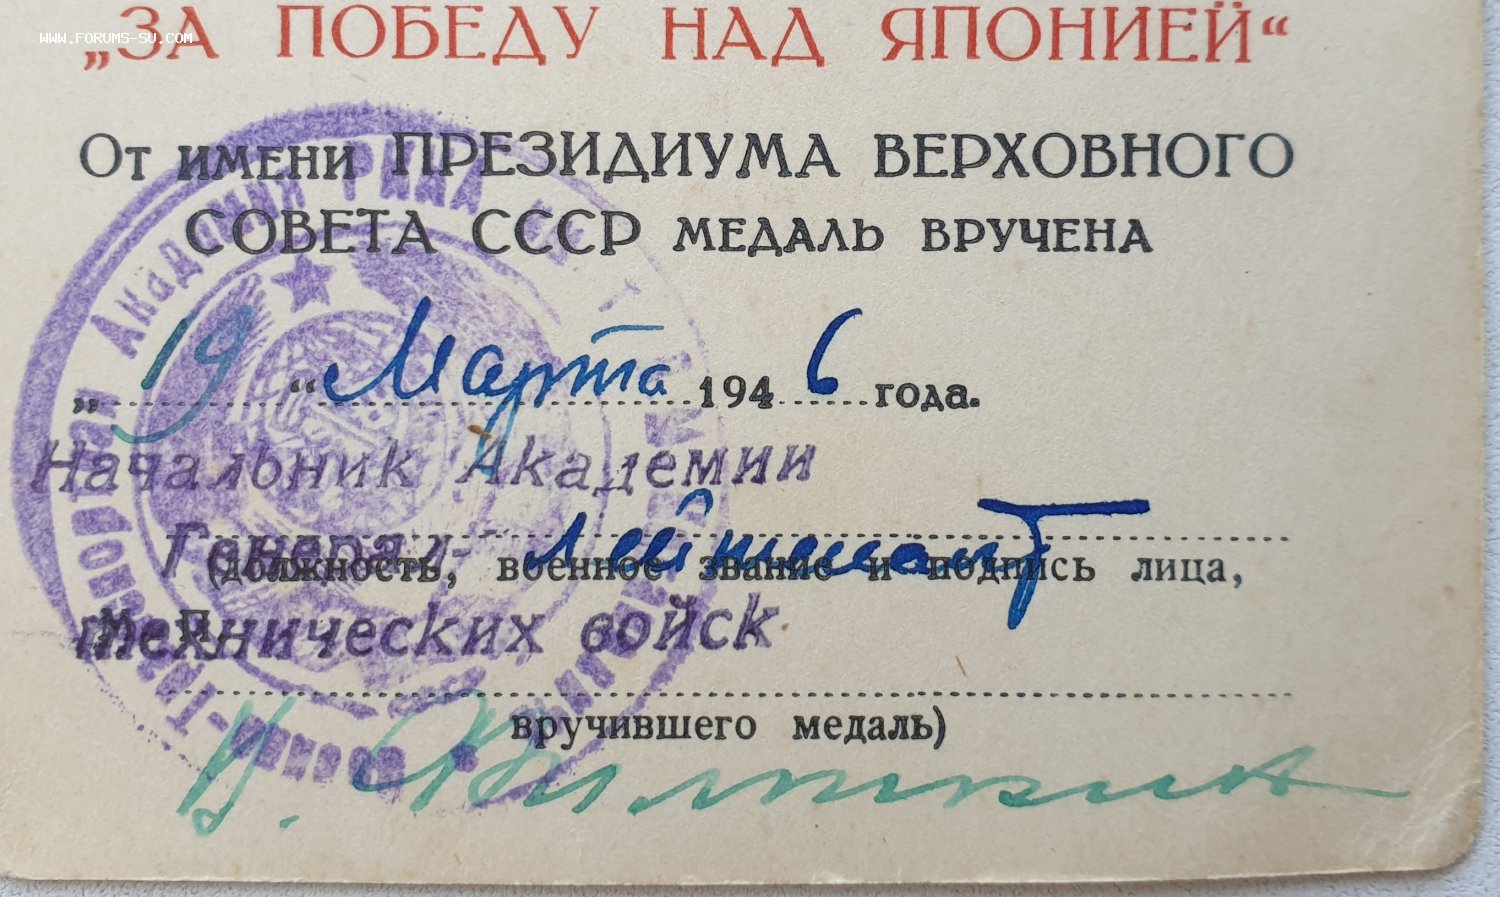 www.forums-su.com
„ЗА ПОБЕДУ НАД ЯПОНИЕЙ“
От имени ПРЕЗИДИУМА ВЕРХОВНОГО
СОВЕТА СССР МЕДАЛЬ ВРУЧЕНА
„19“ Марта 1946 года.
Начальник Академии
Генерал-лейтенант
(должность, военное звание и подпись лица,
М. П.
технических войск
вручившего медаль)
Академия РККА